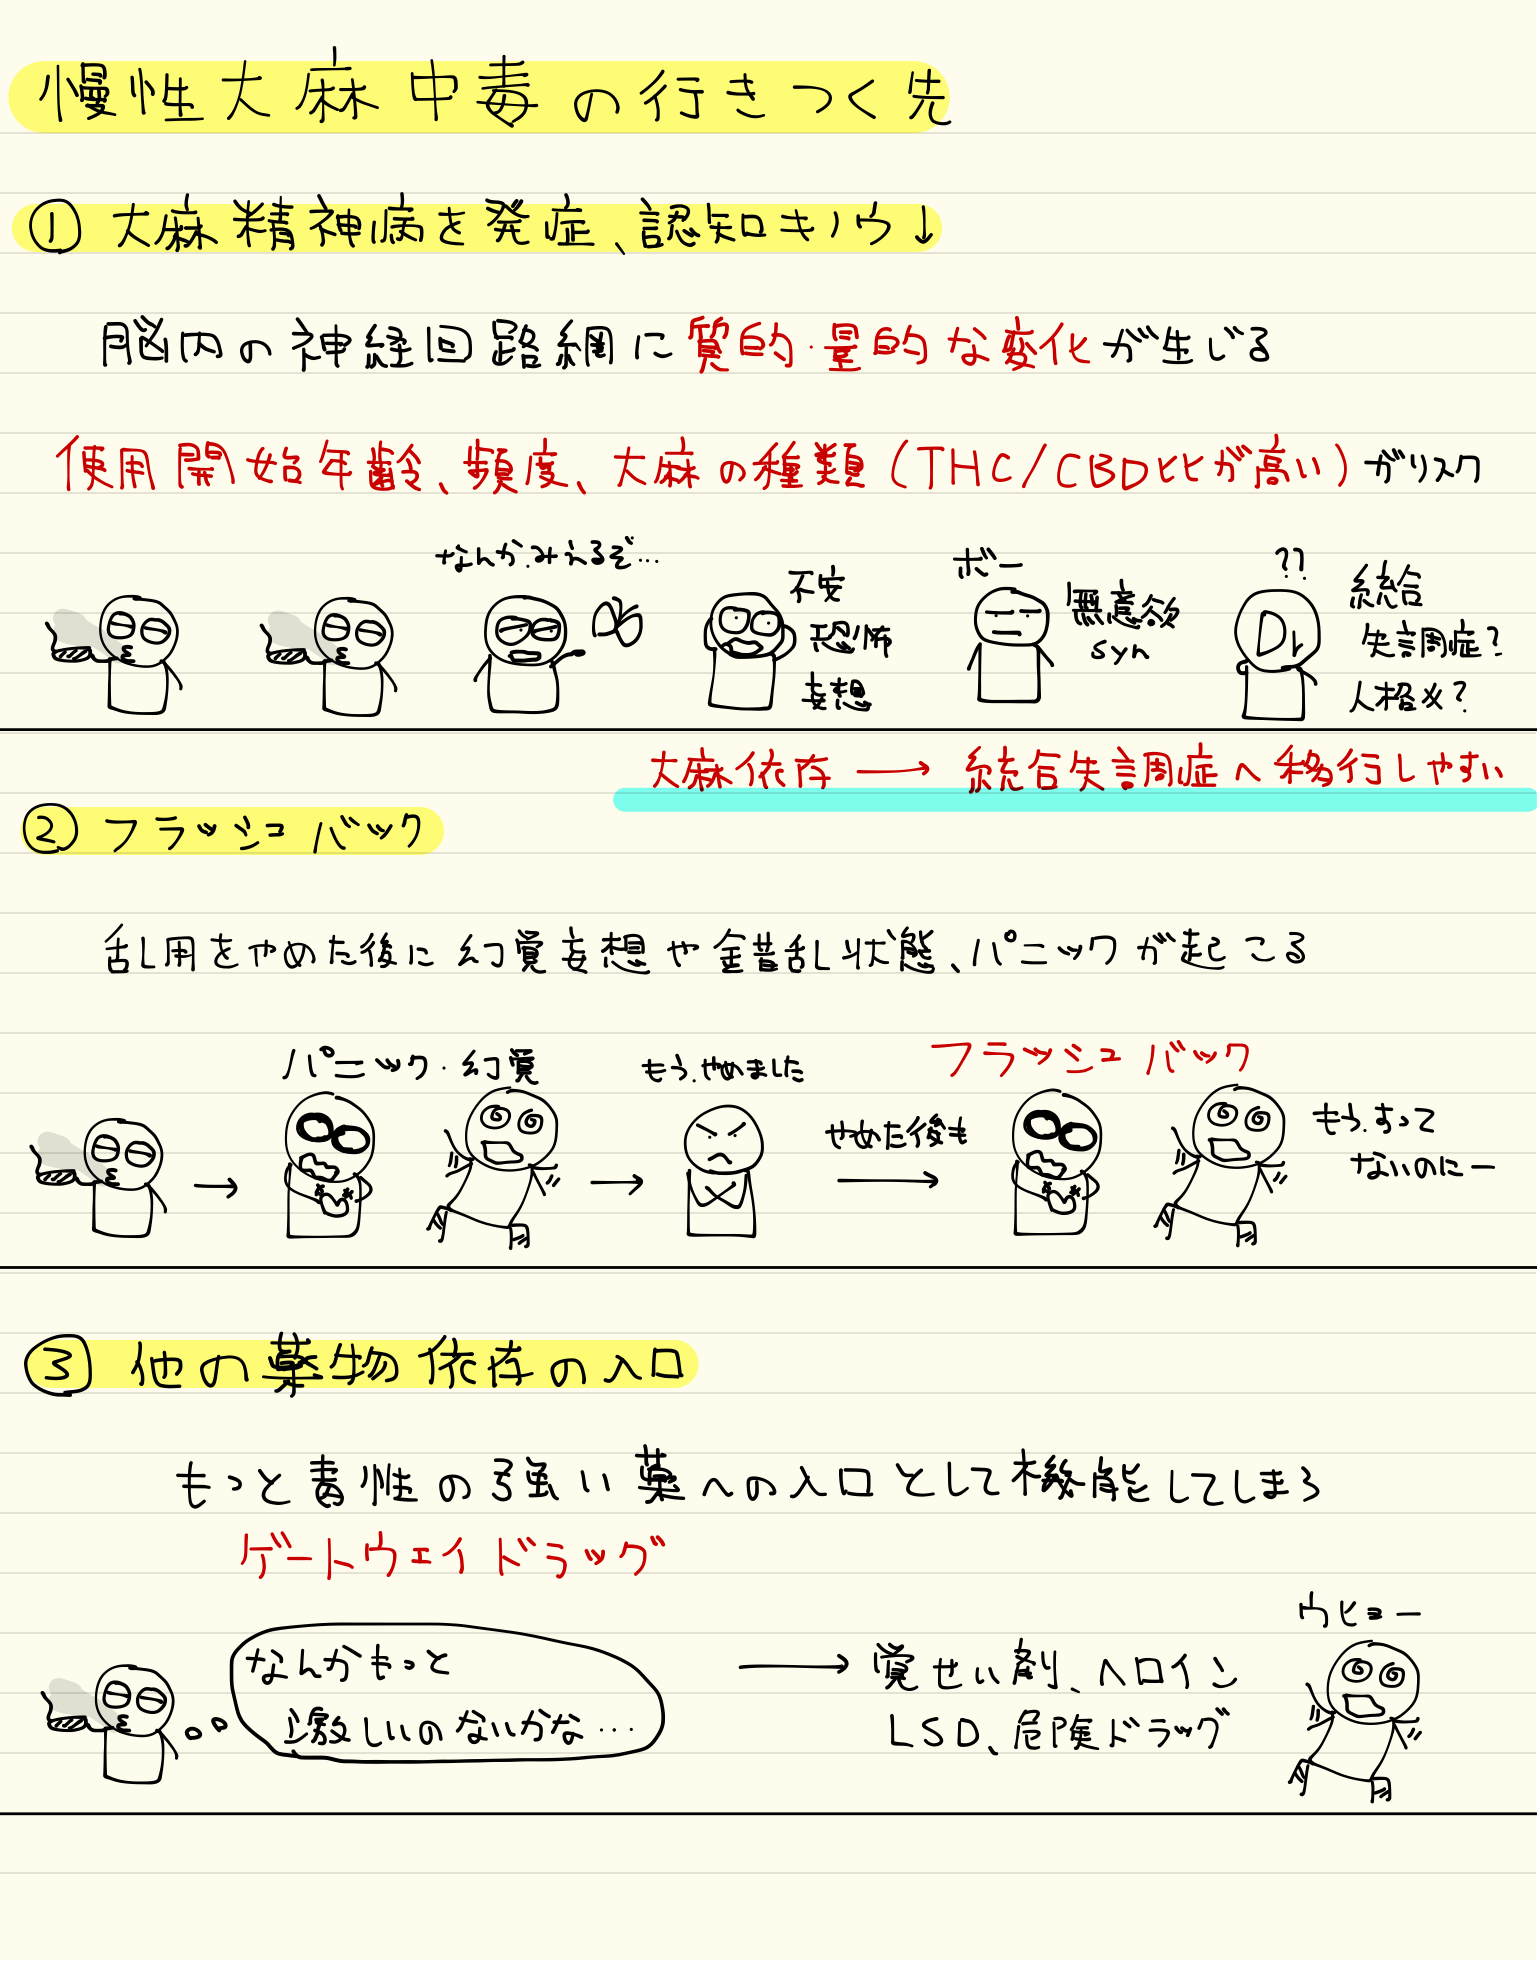 慢性大麻中毒の行きつく先
① 大麻精神病を発症、認知キノウ↓
脳内の神経回路網に質的・量的な変化が生じる
使用開始年齢、頻度、大麻の種類(THC/CBD比が高い)がリスク
なんかみえるぞ…
不安
恐怖
妄想
ボー
無意欲
syn
??
Dr
統合
失調症?
人格〆?
大麻依存 → 統合失調症へ移行しやすい
② フラッシュバック
乱用をやめた後に幻覚妄想や錯乱状態、パニックが起こる
パニック・幻覚
→
もう、やめました
→
やめた後も
→
フラッシュバック
もう、すって
ないのにー
③ 他の薬物依存の入口
もっと毒性の強い薬への入口として機能してしまう
ゲートウェイドラッグ
なんかもっと
激しいのないかな…
→ 覚せい剤、ヘロイン
LSD、危険ドラッグ
ウヒョー